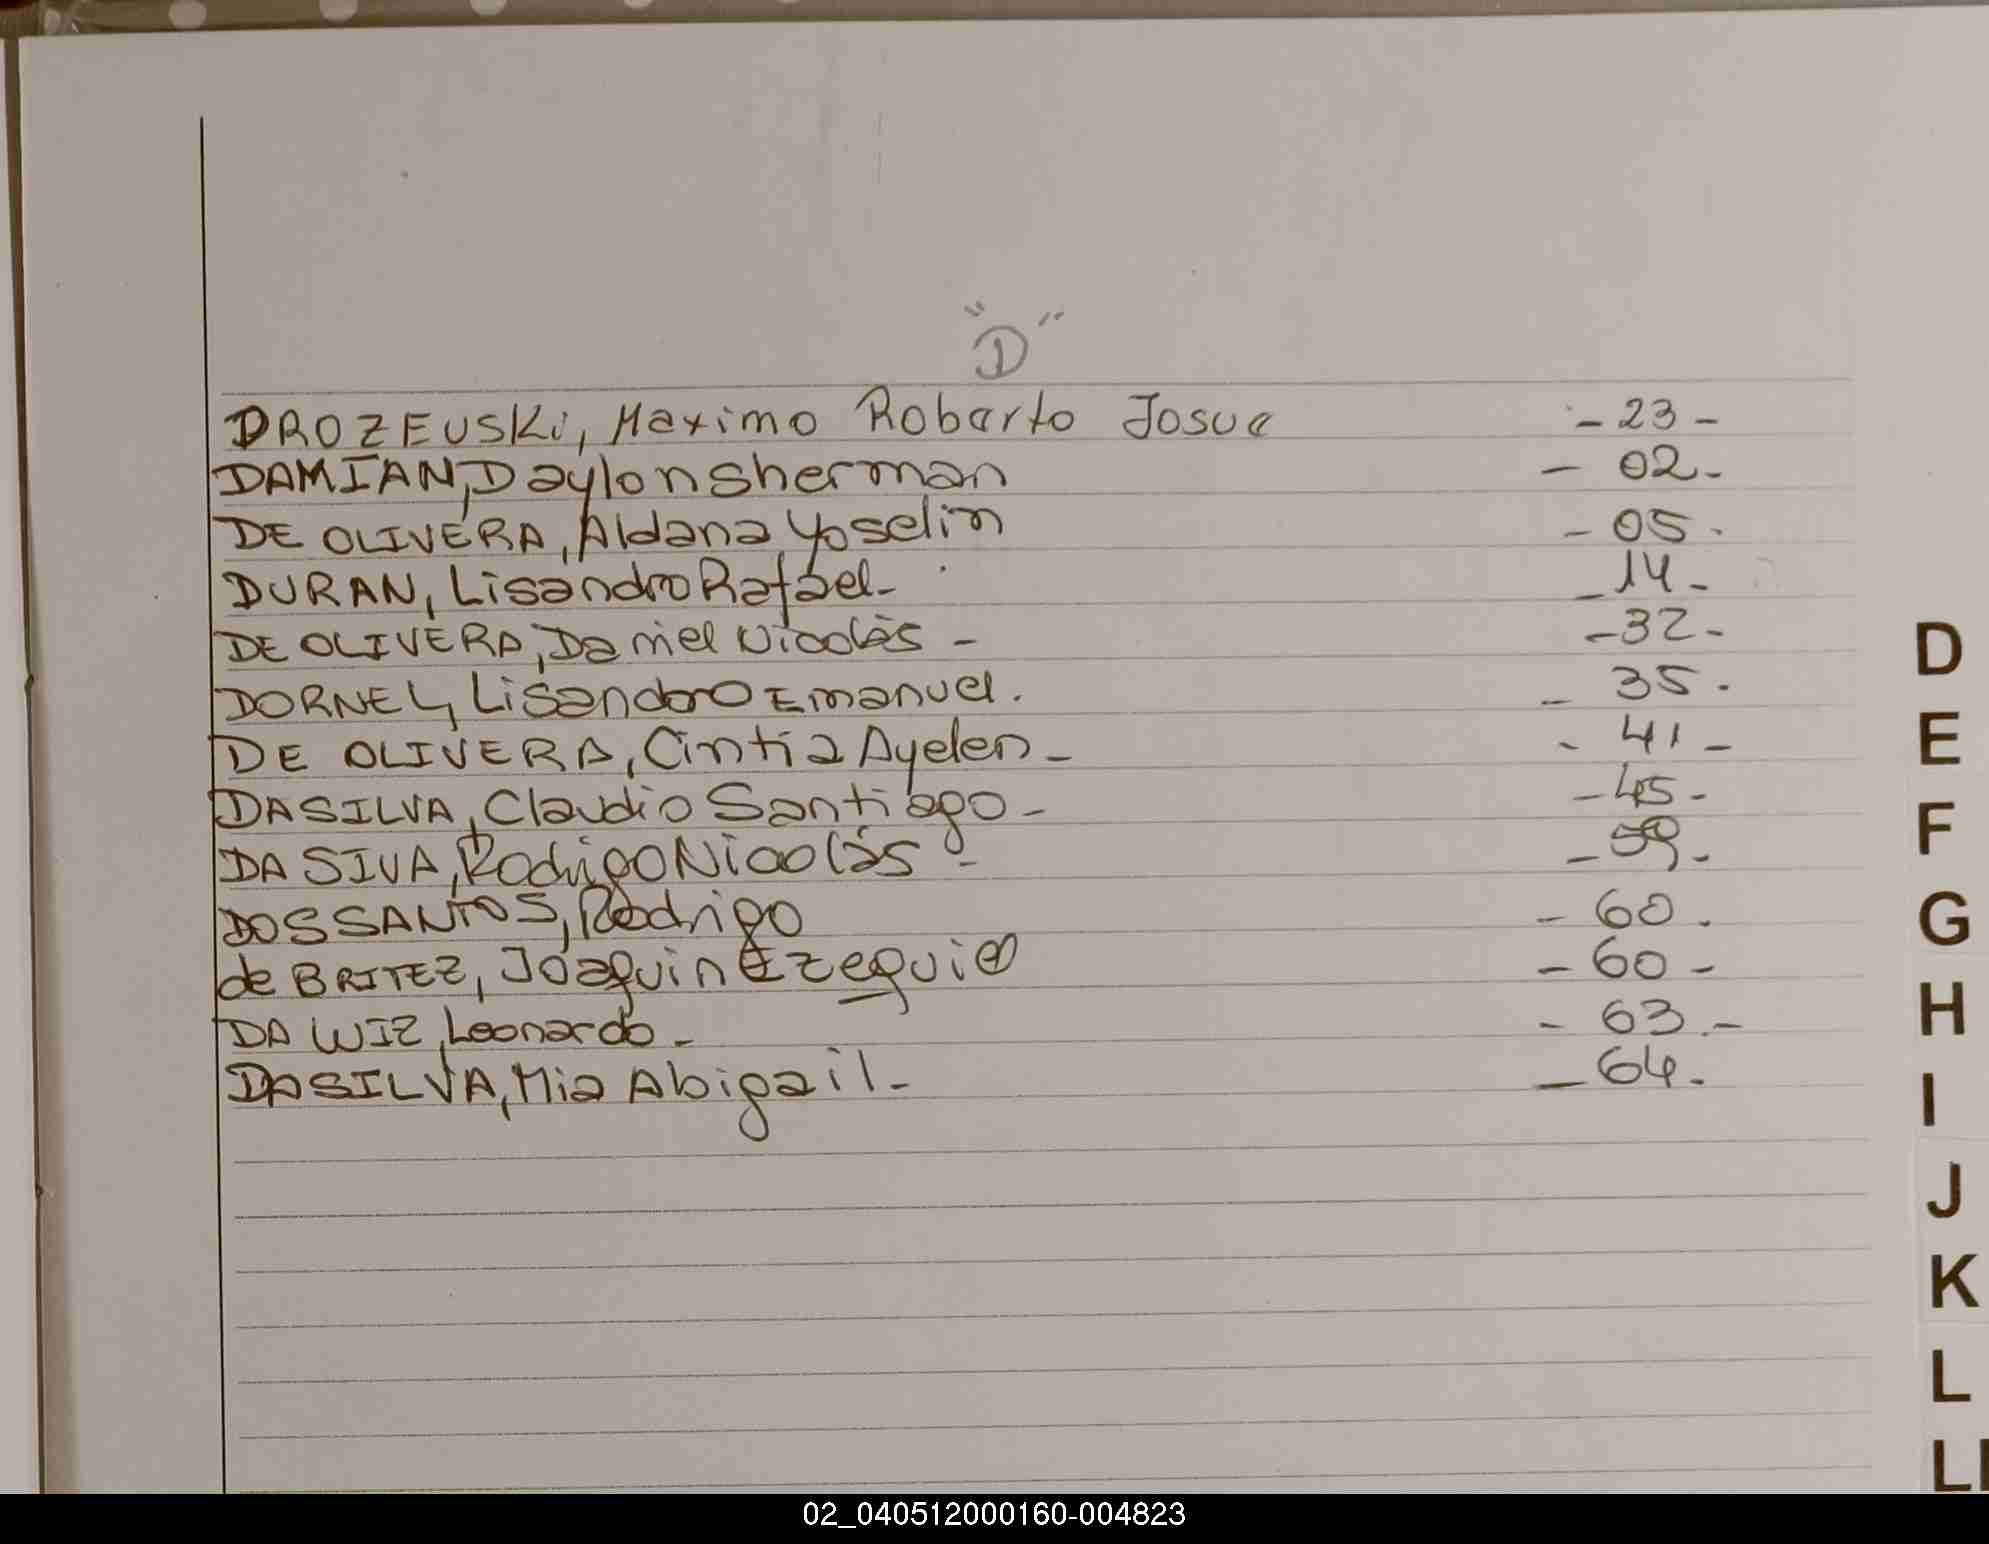 "D"
DROZEUSKi, Maximo Roberto Josue - 23 -
DAMIAN, Daylon Sherman - 02 -
DE OLIVERA, Aldana Yoselin - 05 .
DURAN, Lisandro Rafael - - 14 -
DE OLIVERA, Daniel Nicolás - - 32 -
DORNEL, Lisandro Emanuel . - 35 .
DE OLIVERA, Cintia Ayelen - - 41 -
DA SILVA, Claudio Santiago - - 45 -
DA SIVA, Rodrigo Nicolás - - 59 .
DOS SANTOS, Rodrigo - 60 .
de BRITEZ, Joaquin Ezequiel - 60 -
DA WIZ, Leonardo - - 63 . -
DA SILVA, Mia Abigail - - 64 .
D
E
F
G
H
I
J
K
L
Ll
02_040512000160-004823